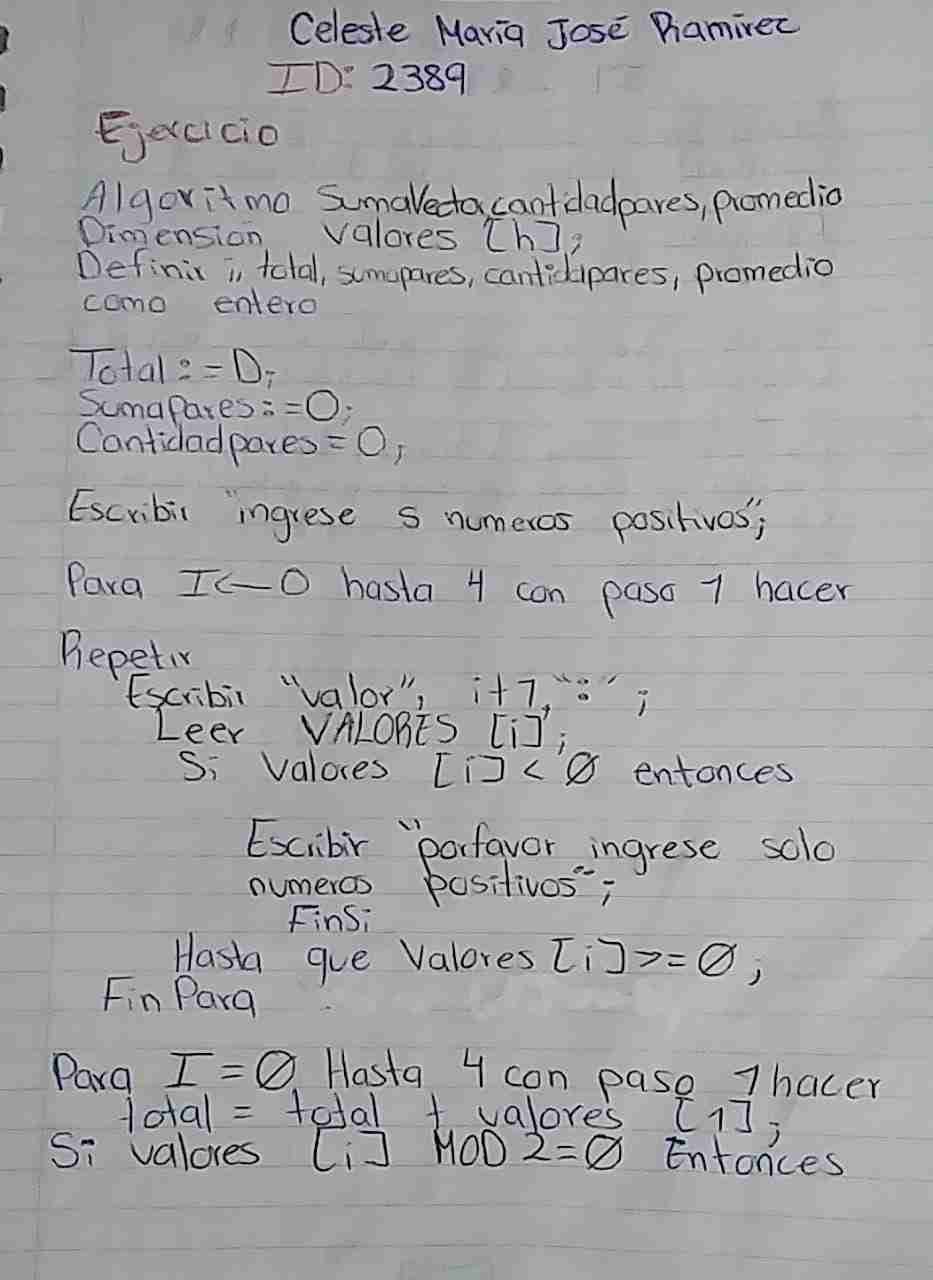 Celeste María José Ramirez
ID: 2389
Ejercicio
Algoritmo SumaVecta,cantidadpares, promedio
Dimension valores [h];
Definir i, total, sumapares, cantidapares, promedio
como entero
Total:=D;
SumaPares:=0;
Cantidadpares=0;
Escribir "ingrese 5 numeros positivos";
Para I<-0 hasta 4 con paso 1 hacer
Repetir
Escribir "valor", i+1, ":" ;
Leer VALORES [i];
Si Valores [i] < Ø entonces
Escribir "porfavor ingrese solo
numeros positivos";
FinSi
Hasta que Valores [i]>=Ø;
Fin Para
Para I=Ø Hasta 4 con paso 1 hacer
total = total + valores [1];
Si valores [i] MOD 2=Ø Entonces